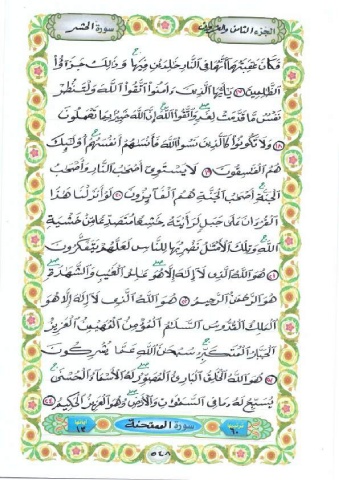 الجزء الثامن والعشرون سورة الحشر
فَكَانَ عَٰقِبَتَهُمَا أَنَّهُمَا فِي النَّارِ خَٰلِدَيْنِ فِيهَا وَذَٰلِكَ جَزَٰؤُا
الظَّٰلِمِينَ ١٧ يَٰأَيُّهَا الَّذِينَ ءَامَنُوا اتَّقُوا اللَّهَ وَلْتَنظُرْ
نَفْسٌ مَّا قَدَّمَتْ لِغَدٍ وَاتَّقُوا اللَّهَ إِنَّ اللَّهَ خَبِيرٌ بِمَا تَعْمَلُونَ
١٨ وَلَا تَكُونُوا كَالَّذِينَ نَسُوا اللَّهَ فَأَنسَىٰهُمْ أَنفُسَهُمْ أُولَٰئِكَ
هُمُ الْفَٰسِقُونَ ١٩ لَا يَسْتَوِي أَصْحَٰبُ النَّارِ وَأَصْحَٰبُ
الْجَنَّةِ أَصْحَٰبُ الْجَنَّةِ هُمُ الْفَائِزُونَ ٢٠ لَوْ أَنزَلْنَا هَٰذَا
الْقُرْءَانَ عَلَىٰ جَبَلٍ لَّرَأَيْتَهُ خَٰشِعًا مُّتَصَدِّعًا مِّنْ خَشْيَةِ
اللَّهِ وَتِلْكَ الْأَمْثَٰلُ نَضْرِبُهَا لِلنَّاسِ لَعَلَّهُمْ يَتَفَكَّرُونَ
٢١ هُوَ اللَّهُ الَّذِي لَا إِلَٰهَ إِلَّا هُوَ عَٰلِمُ الْغَيْبِ وَالشَّهَٰدَةِ
هُوَ الرَّحْمَٰنُ الرَّحِيمُ ٢٢ هُوَ اللَّهُ الَّذِي لَا إِلَٰهَ إِلَّا هُوَ
الْمَلِكُ الْقُدُّوسُ السَّلَٰمُ الْمُؤْمِنُ الْمُهَيْمِنُ الْعَزِيزُ
الْجَبَّارُ الْمُتَكَبِّرُ سُبْحَٰنَ اللَّهِ عَمَّا يُشْرِكُونَ
٢٣ هُوَ اللَّهُ الْخَٰلِقُ الْبَارِئُ الْمُصَوِّرُ لَهُ الْأَسْمَاءُ الْحُسْنَىٰ
يُسَبِّحُ لَهُ مَا فِي السَّمَٰوَٰتِ وَالْأَرْضِ وَهُوَ الْعَزِيزُ الْحَكِيمُ ٢٤
ترتيبها ٦٠ سورة الممتحنة آياتها ١٣
٥٤٨